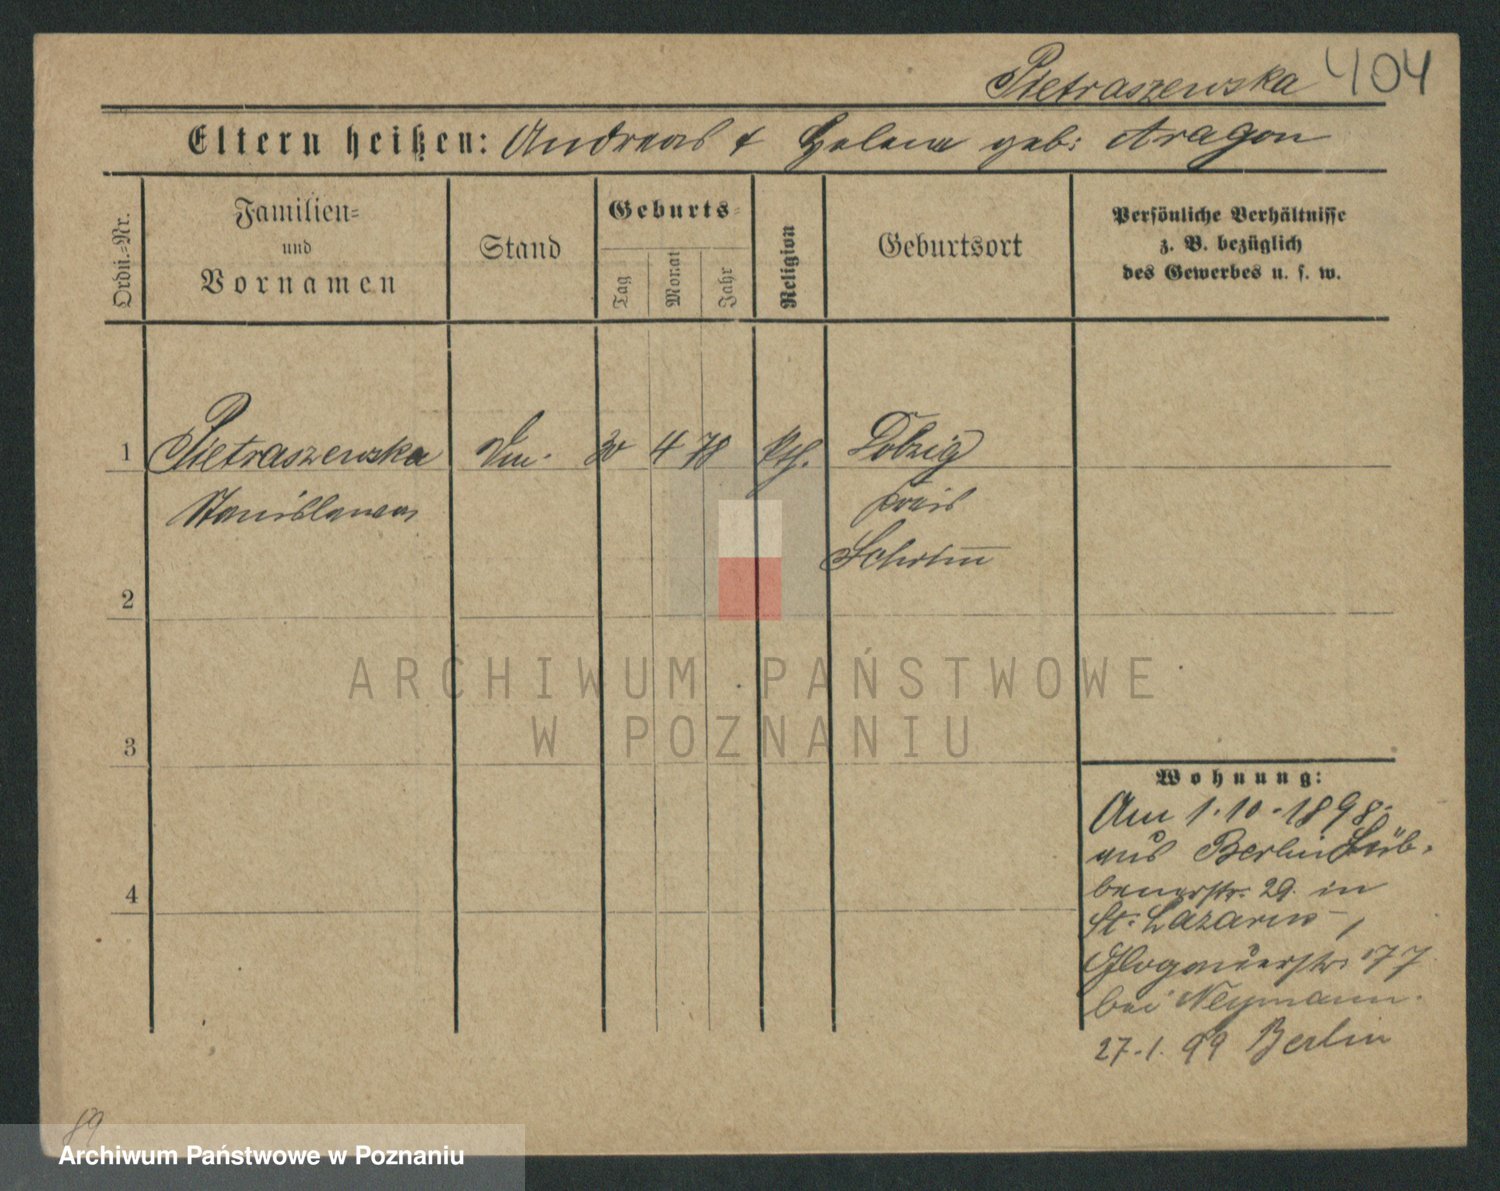 Pietraszewska 404
Eltern heißen: Andreas & Helena geb: Aragon
Ordn.-Nr.
Familien-
und
Vornamen
Stand
Geburts-
Tag
Monat
Jahr
Religion
Geburtsort
Persönliche Verhältnisse
z. B. bezüglich
des Gewerbes u. s. w.
1 Pietraszewska 30 4 78 kth. Dolzig
Stanislawa Kreis
Schrimm
2
3
4
Wohnung:
Am 1.10.1898.
aus Berlin Lüb-
benerstr. 29. in
St. Lazarus,
Glogauerstr. 77
bei Neymann.
27.1.99 Berlin
89
ARCHIWUM PAŃSTWOWE
W POZNANIU
Archiwum Państwowe w Poznaniu